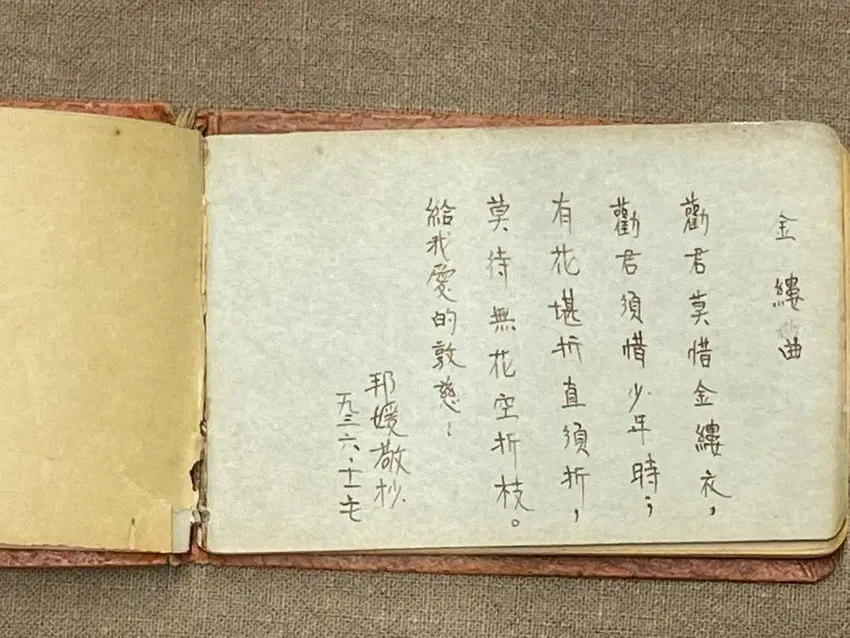 金縷曲
勸君莫惜金縷衣，
勸君須惜少年時；
有花堪折直須折，
莫待無花空折枝。
給我愛的敦慈：
邦媛敬抄